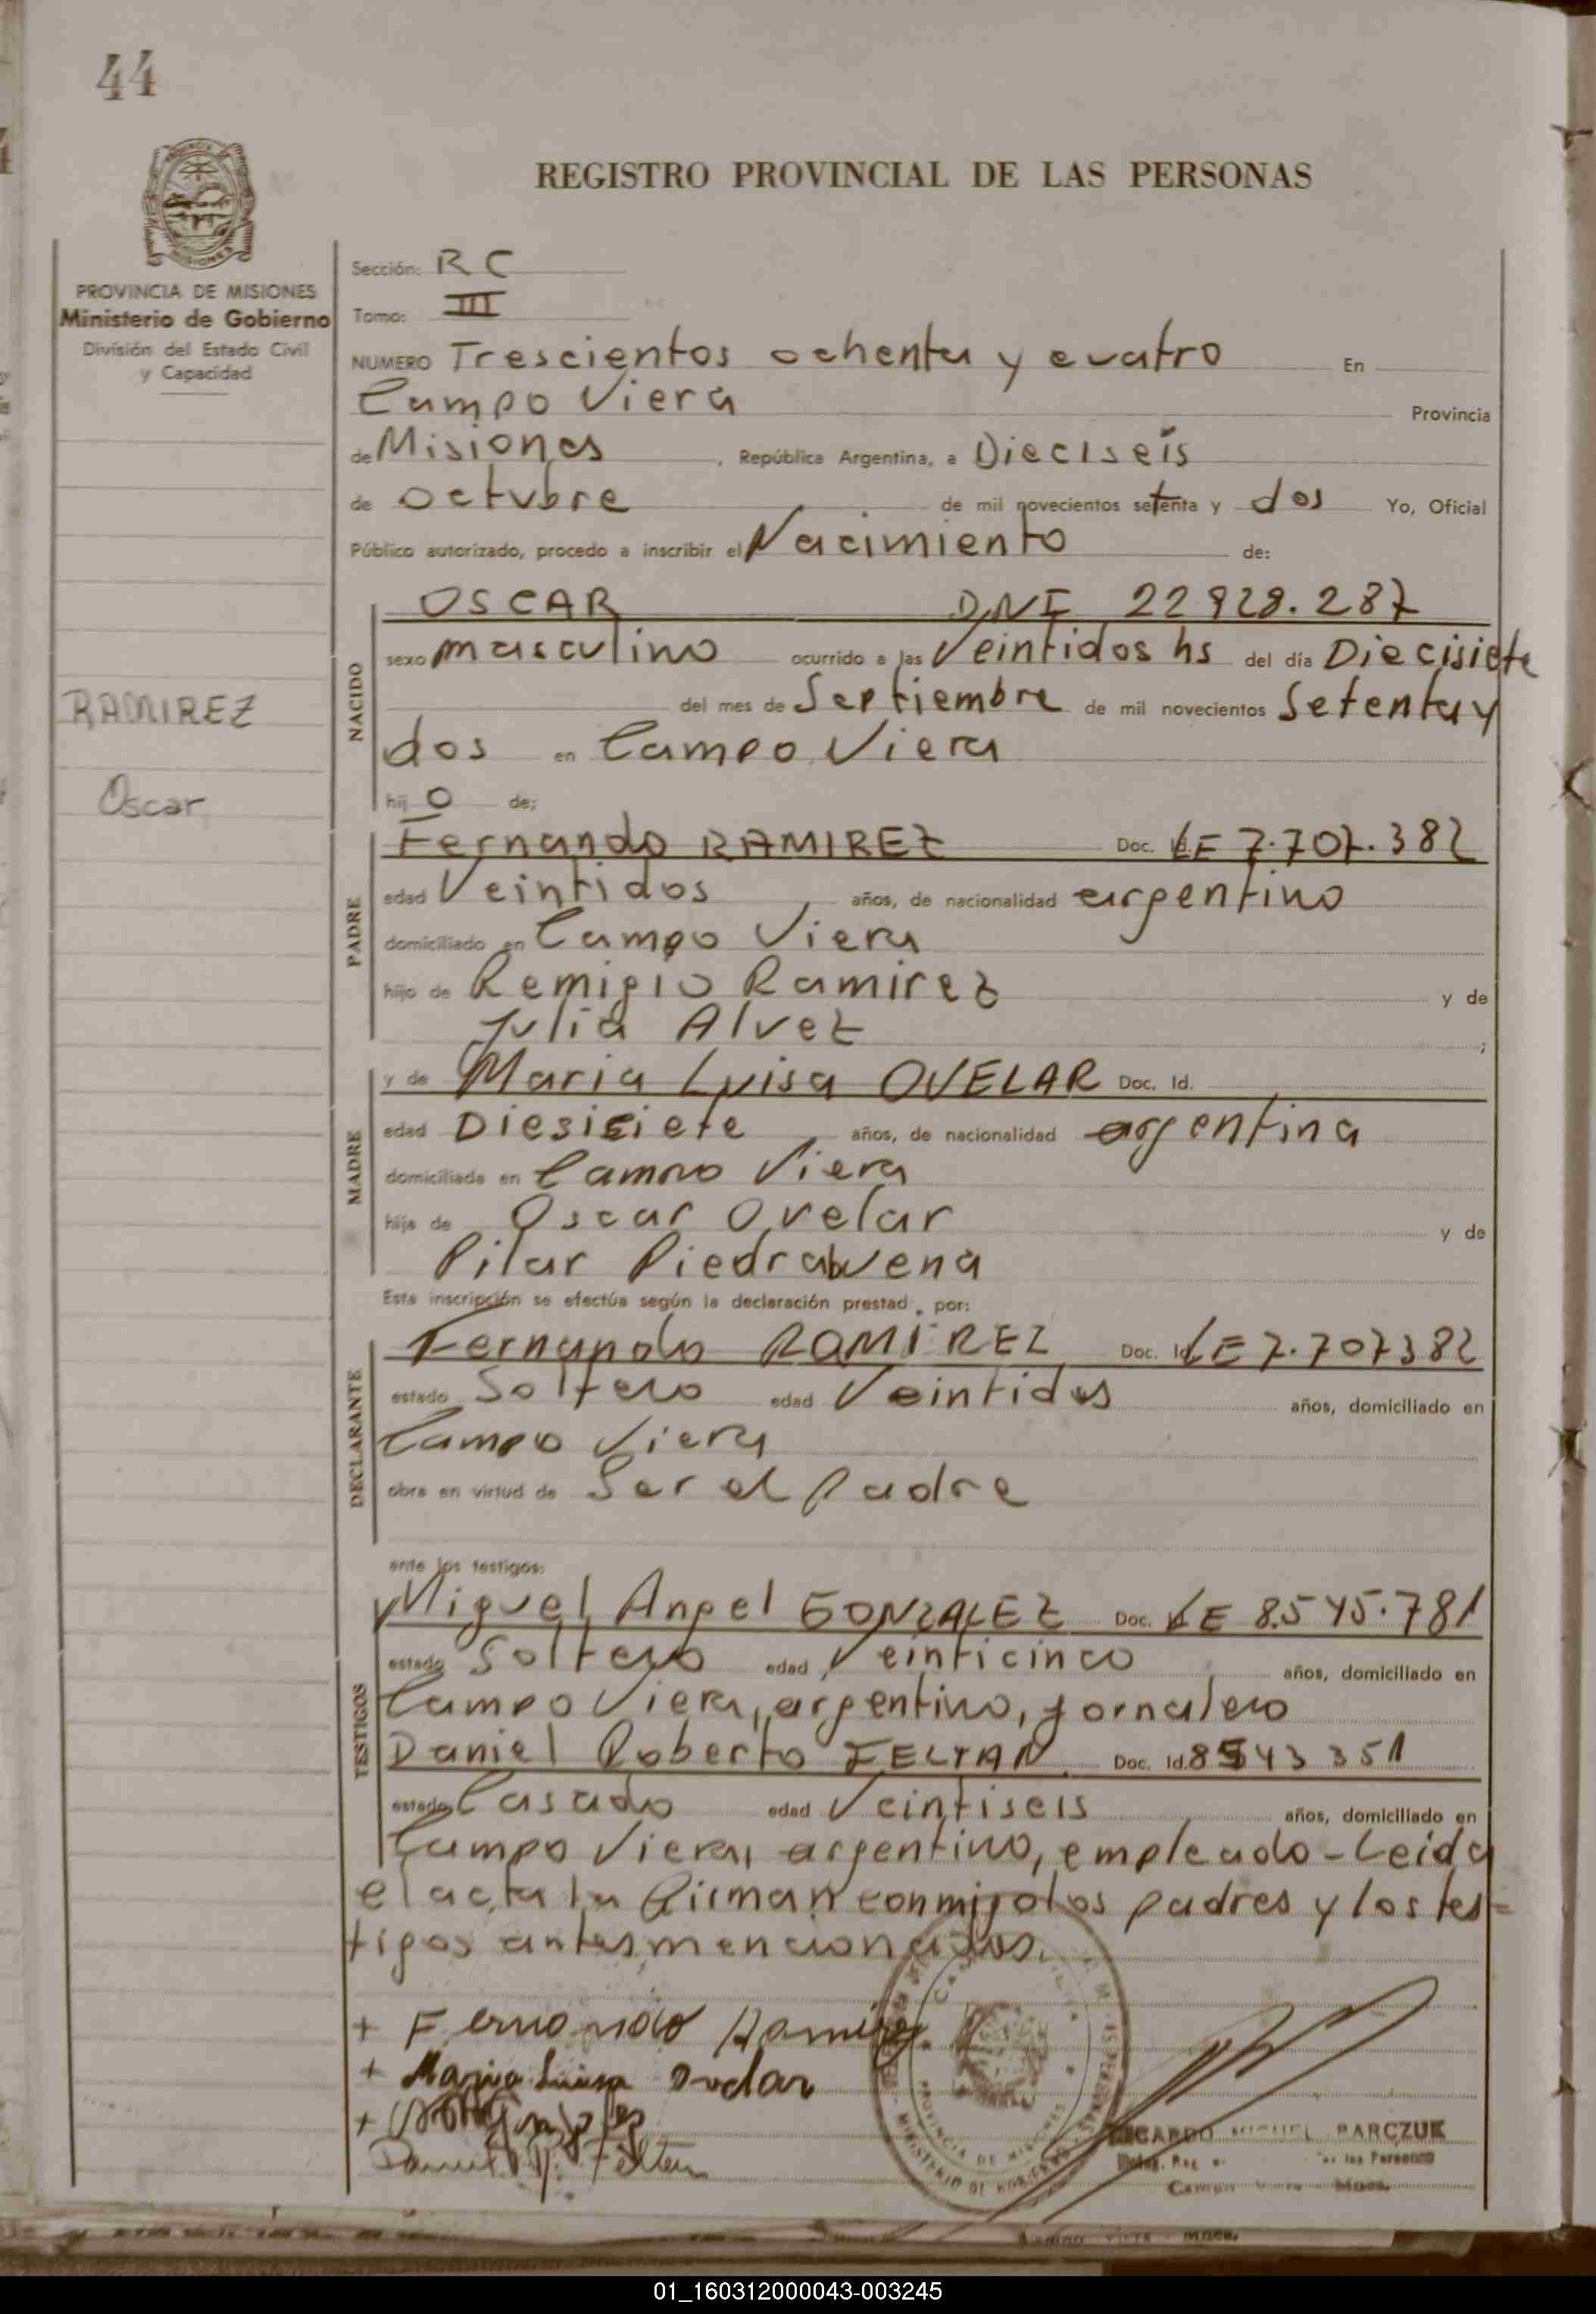 44
REGISTRO PROVINCIAL DE LAS PERSONAS
PROVINCIA DE MISIONES
Ministerio de Gobierno
División del Estado Civil
y Capacidad
RAMIREZ
Oscar
Sección: RC
Tomo: III
NUMERO Trescientos ochenta y cuatro En
Campo Viera Provincia
de Misiones, República Argentina, a Dieciseis
de octubre de mil novecientos setenta y dos Yo, Oficial
Público autorizado, procedo a inscribir el Nacimiento de:
NACIDO
OSCAR DNI 22928.287
sexo masculino ocurrido a las Veintidos hs del día Diecisiete
del mes de Septiembre de mil novecientos Setenta y
dos en Campo Viera
hijo de;
PADRE
Fernando RAMIREZ Doc. LE 7.707.382
edad Veintidos años, de nacionalidad argentino
domiciliado en Campo Viera
hijo de Remigio Ramirez y de
Julia Alvez ;
MADRE
y de Maria Luisa OVELAR Doc. Id.
edad Diesisiete años, de nacionalidad argentina
domiciliada en Campo Viera
hija de Oscar Ovelar y de
Pilar Piedrabuena
Esta inscripción se efectúa según la declaración prestad , por:
DECLARANTE
Fernando RAMIREZ Doc. Id. LE 7.707382
estado Soltero edad Veintidos años, domiciliado en
Campo Viera
obra en virtud de Ser el padre
ante los testigos:
TESTIGOS
Miguel Angel GONZALEZ Doc. LE 8.545.781
estado Soltero edad Veinticinco años, domiciliado en
Campo Viera, argentino, jornalero
Daniel Roberto FELTAN Doc. Id. 8543351
estado Casado edad Veintiseis años, domiciliado en
Campo Viera, argentino, empleado - Leida
el acta la firman conmigo los padres y los tes=
tigos antes mencionados.
+ Fernando Ramirez
+ Maria Luisa Ovelar
+
Daniel R. Feltan
PROVINCIA DE MISIONES
MINISTERIO DE GOBIERNO
RICARDO MIGUEL PARCZUK
01_160312000043-003245